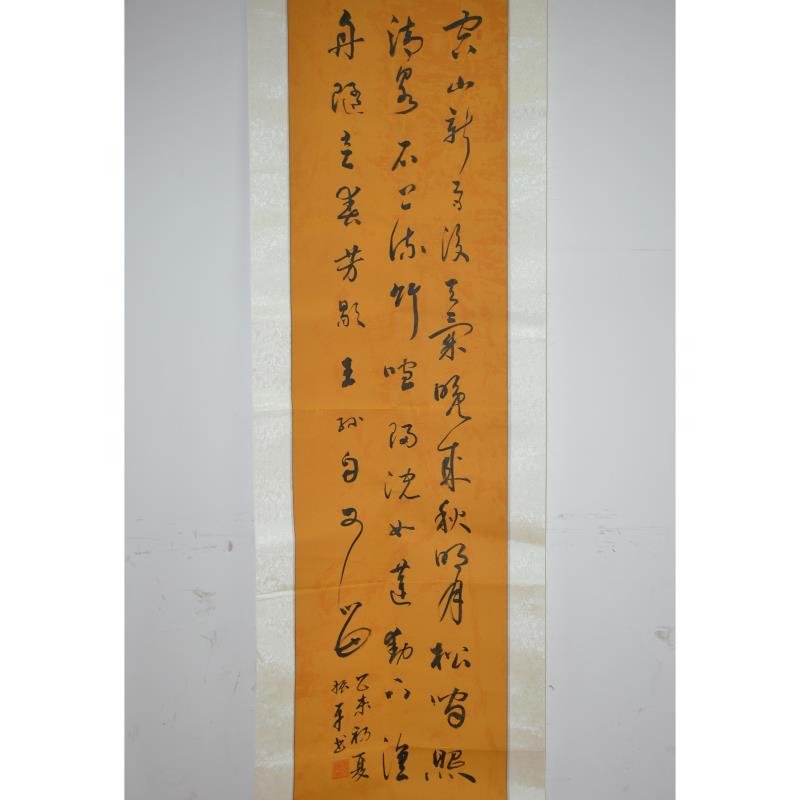 空山新雨後天氣晚來秋明月松間照
清泉石上流竹喧歸浣女蓮動下漁
舟隨意春芳歇王孫自可留
乙未初夏
振书